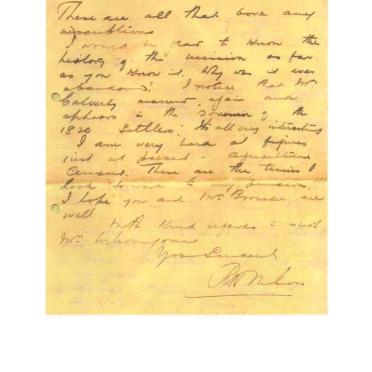 These are all that bore any
inscriptions
I would be glad to know the
history of the mission as far
as you know it. Why was it ever
abandoned? I notice that Mr
Calverly married again and
appears in the Souvenir of the
1820 Settlers. It's all very interesting
I am very hard at figures
just at present - Agriculture
Census. These are the times I
look forward to my pension!!!
I hope you and Mrs Brownlee are
well
With Kind regards in which
Mrs joins
Yours Sincerely